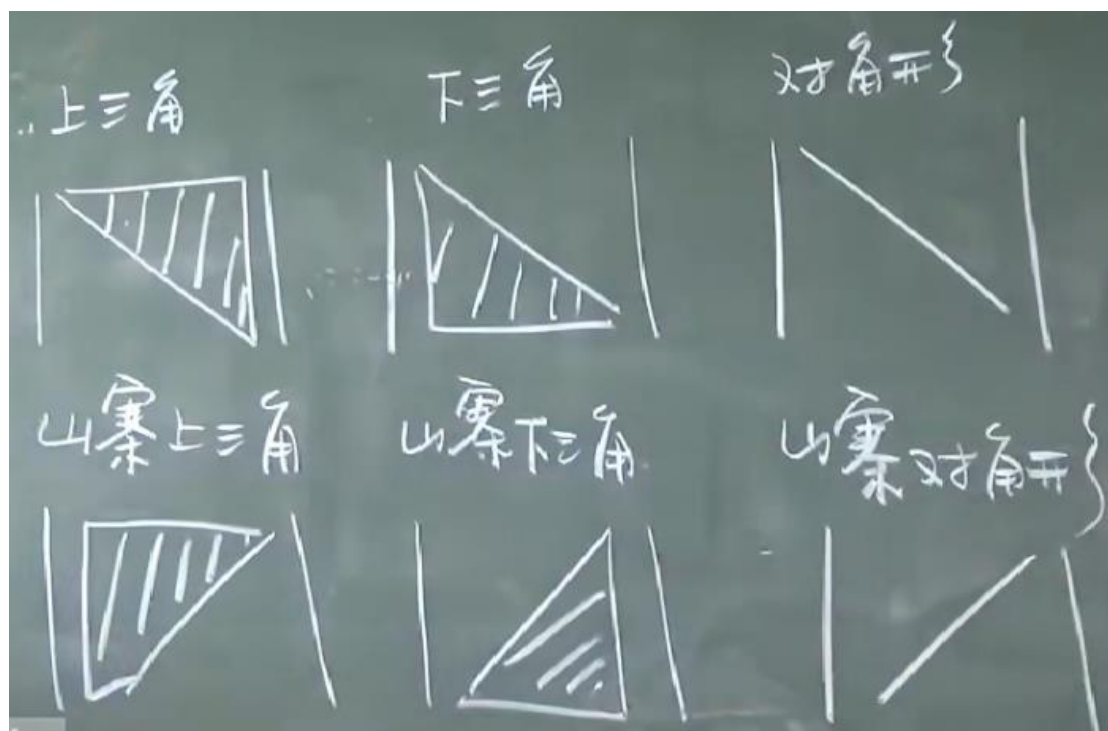 上三角
下三角
对角形
山寨上三角
山寨下三角
山寨对角形